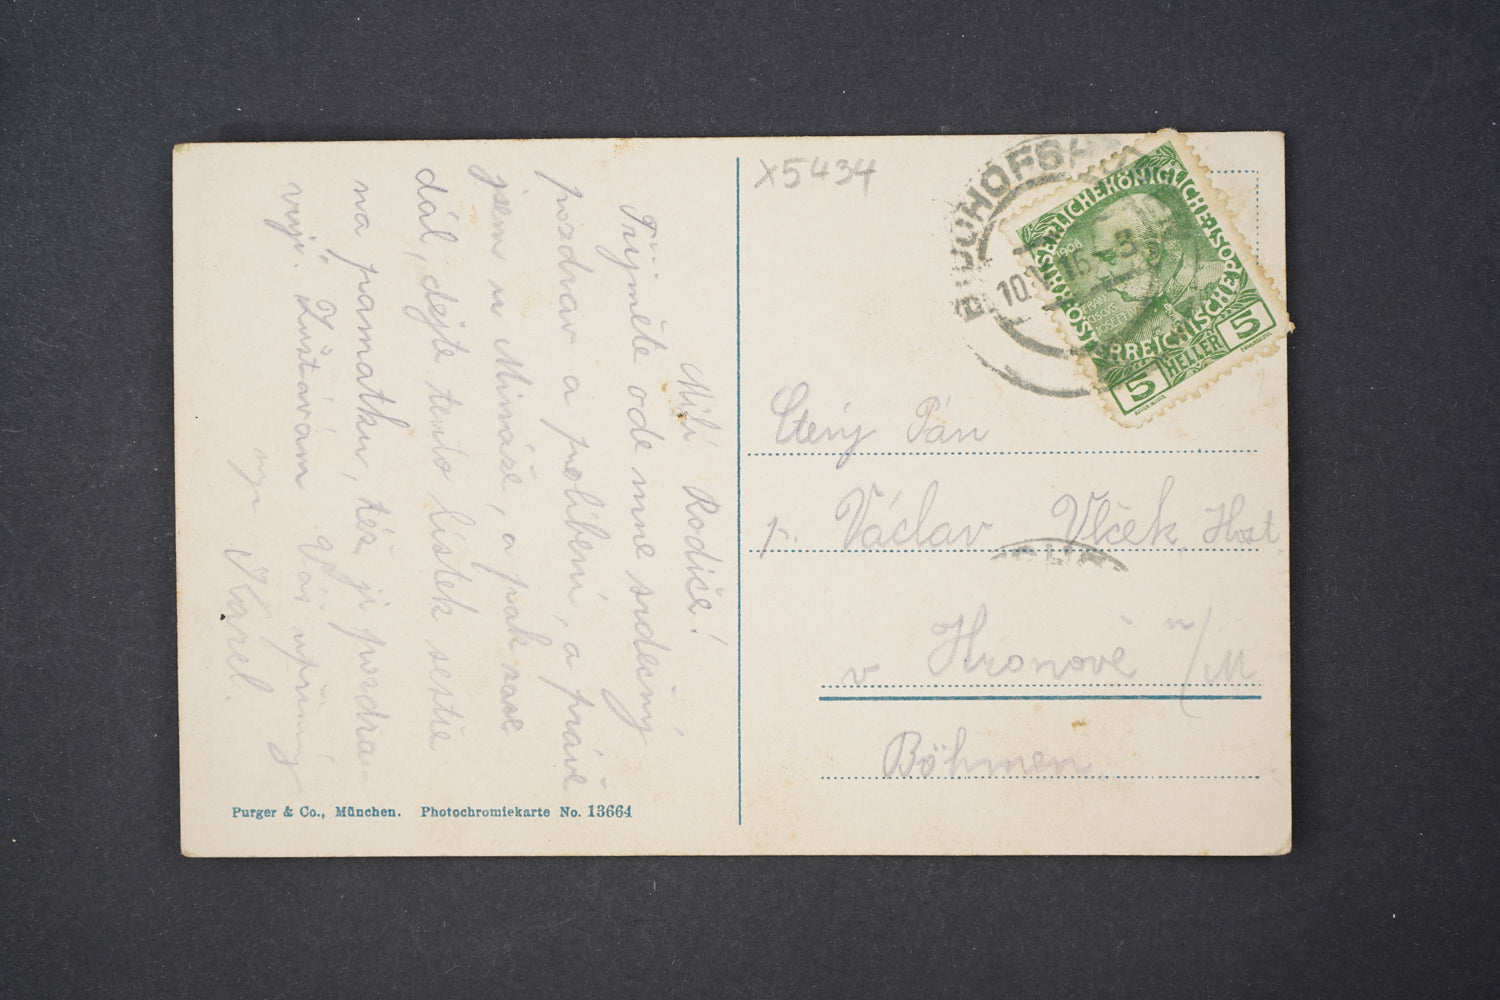 Milí Rodiče!
Přijměte ode mne srdečný
pozdrav a políbení, a právě
jsem u Mináře, a pak zase
dál, dejte tento lístek sestře
na památku, též ji pozdra-
vuji. Zůstávám Váš upřímný
syn Karel.
Purger & Co., München. Photochromiekarte No. 13664
X5434
KAISERLICHE KÖNIGLICHE
ÖSTERREICHISCHE POST
1908
5 HELLER 5
Ctěný Pán
p. Václav Vlček, Host.
v Hronově n/M
Böhmen.